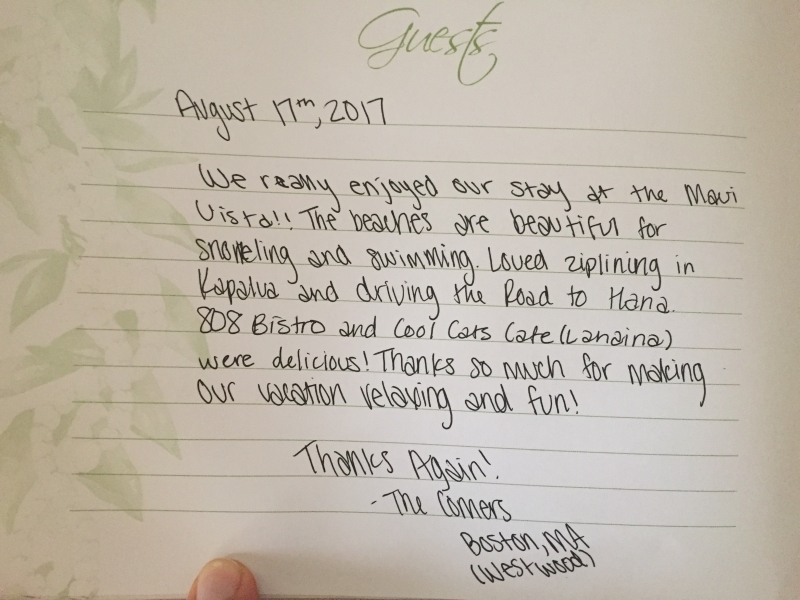 Guests
August 17th, 2017
We really enjoyed our stay at the Maui
Vista!! The beaches are beautiful for
snorkeling and swimming. Loved ziplining in
Kapalua and driving the Road to Hana.
808 Bistro and Cool Cats Cafe (Lahaina)
were delicious! Thanks so much for making
our vacation relaxing and fun!
Thanks Again!
- The Comers
Boston, MA
(Westwood)